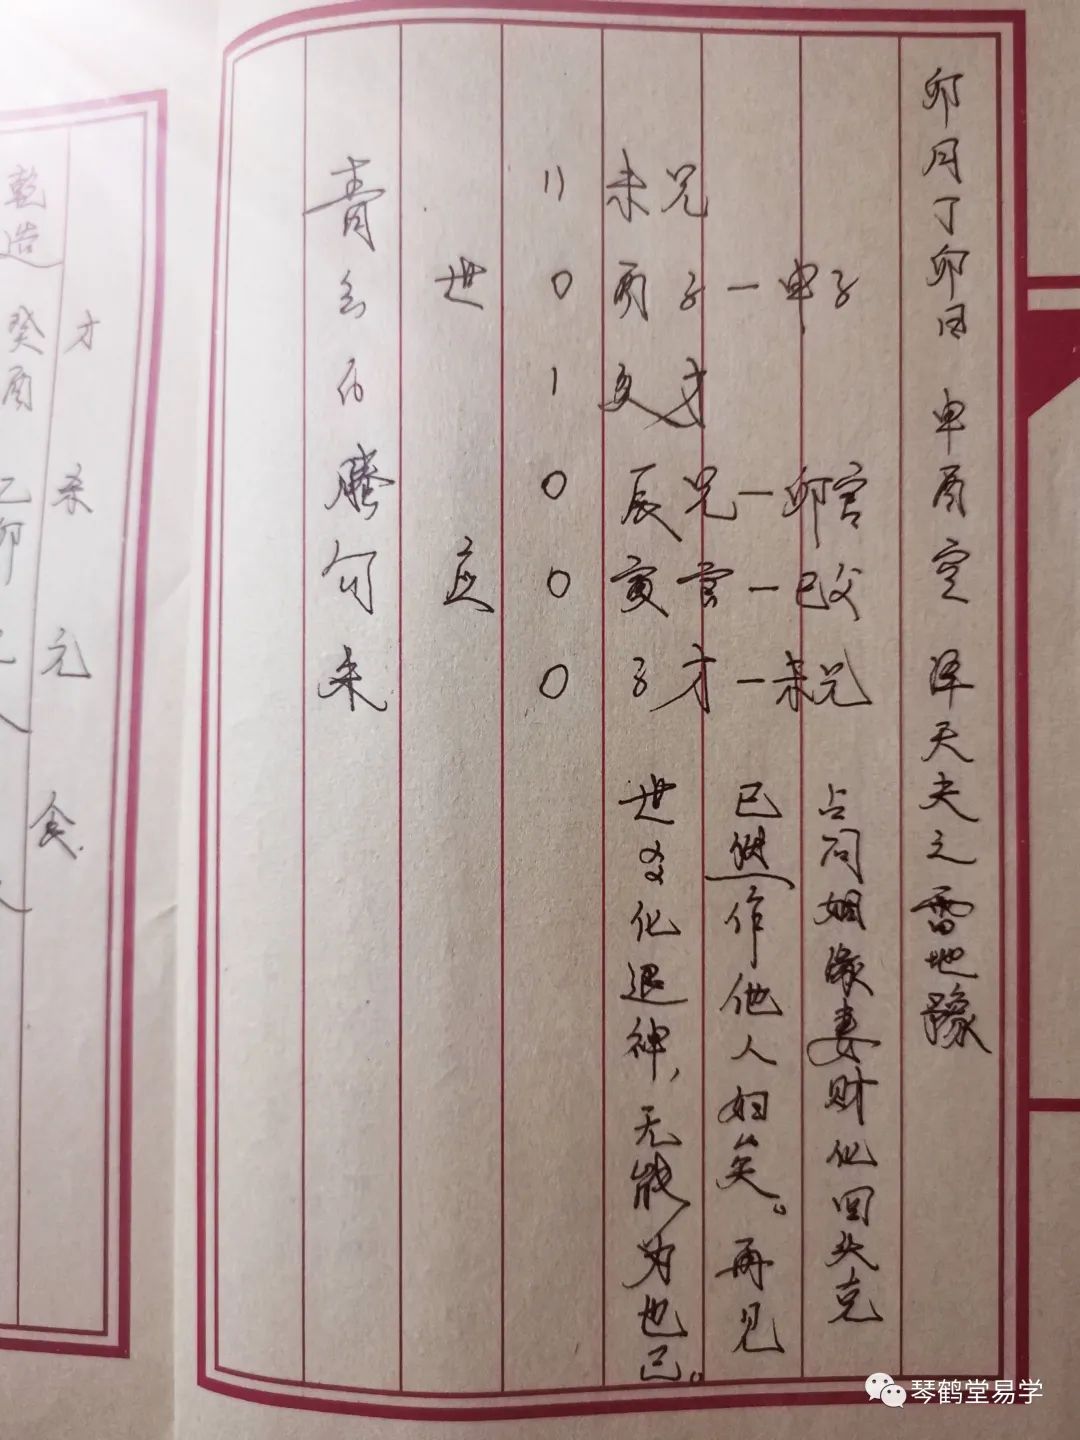 卯月丁卯日 申酉空 泽天夬之雷地豫
青 〃 未兄
玄 世 0 酉子—申子
白 1 亥才
腾 0 辰兄—卯官
勾 应 0 寅官—巳父
朱 0 子才—未兄
占问姻缘妻财化回头克
已作他人妇矣。再见
世爻化退神，无能为也已。
才 杀 元 食
乾造 癸酉 乙卯
琴鹤堂易学